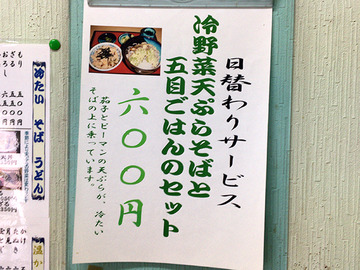 日替わりサービス
冷野菜天ぷらそばと
五目ごはんのセット
六〇〇円
茄子とピーマンの天ぷらが、冷たい
そばの上に乗っています。
冷たい そば うどん
温か